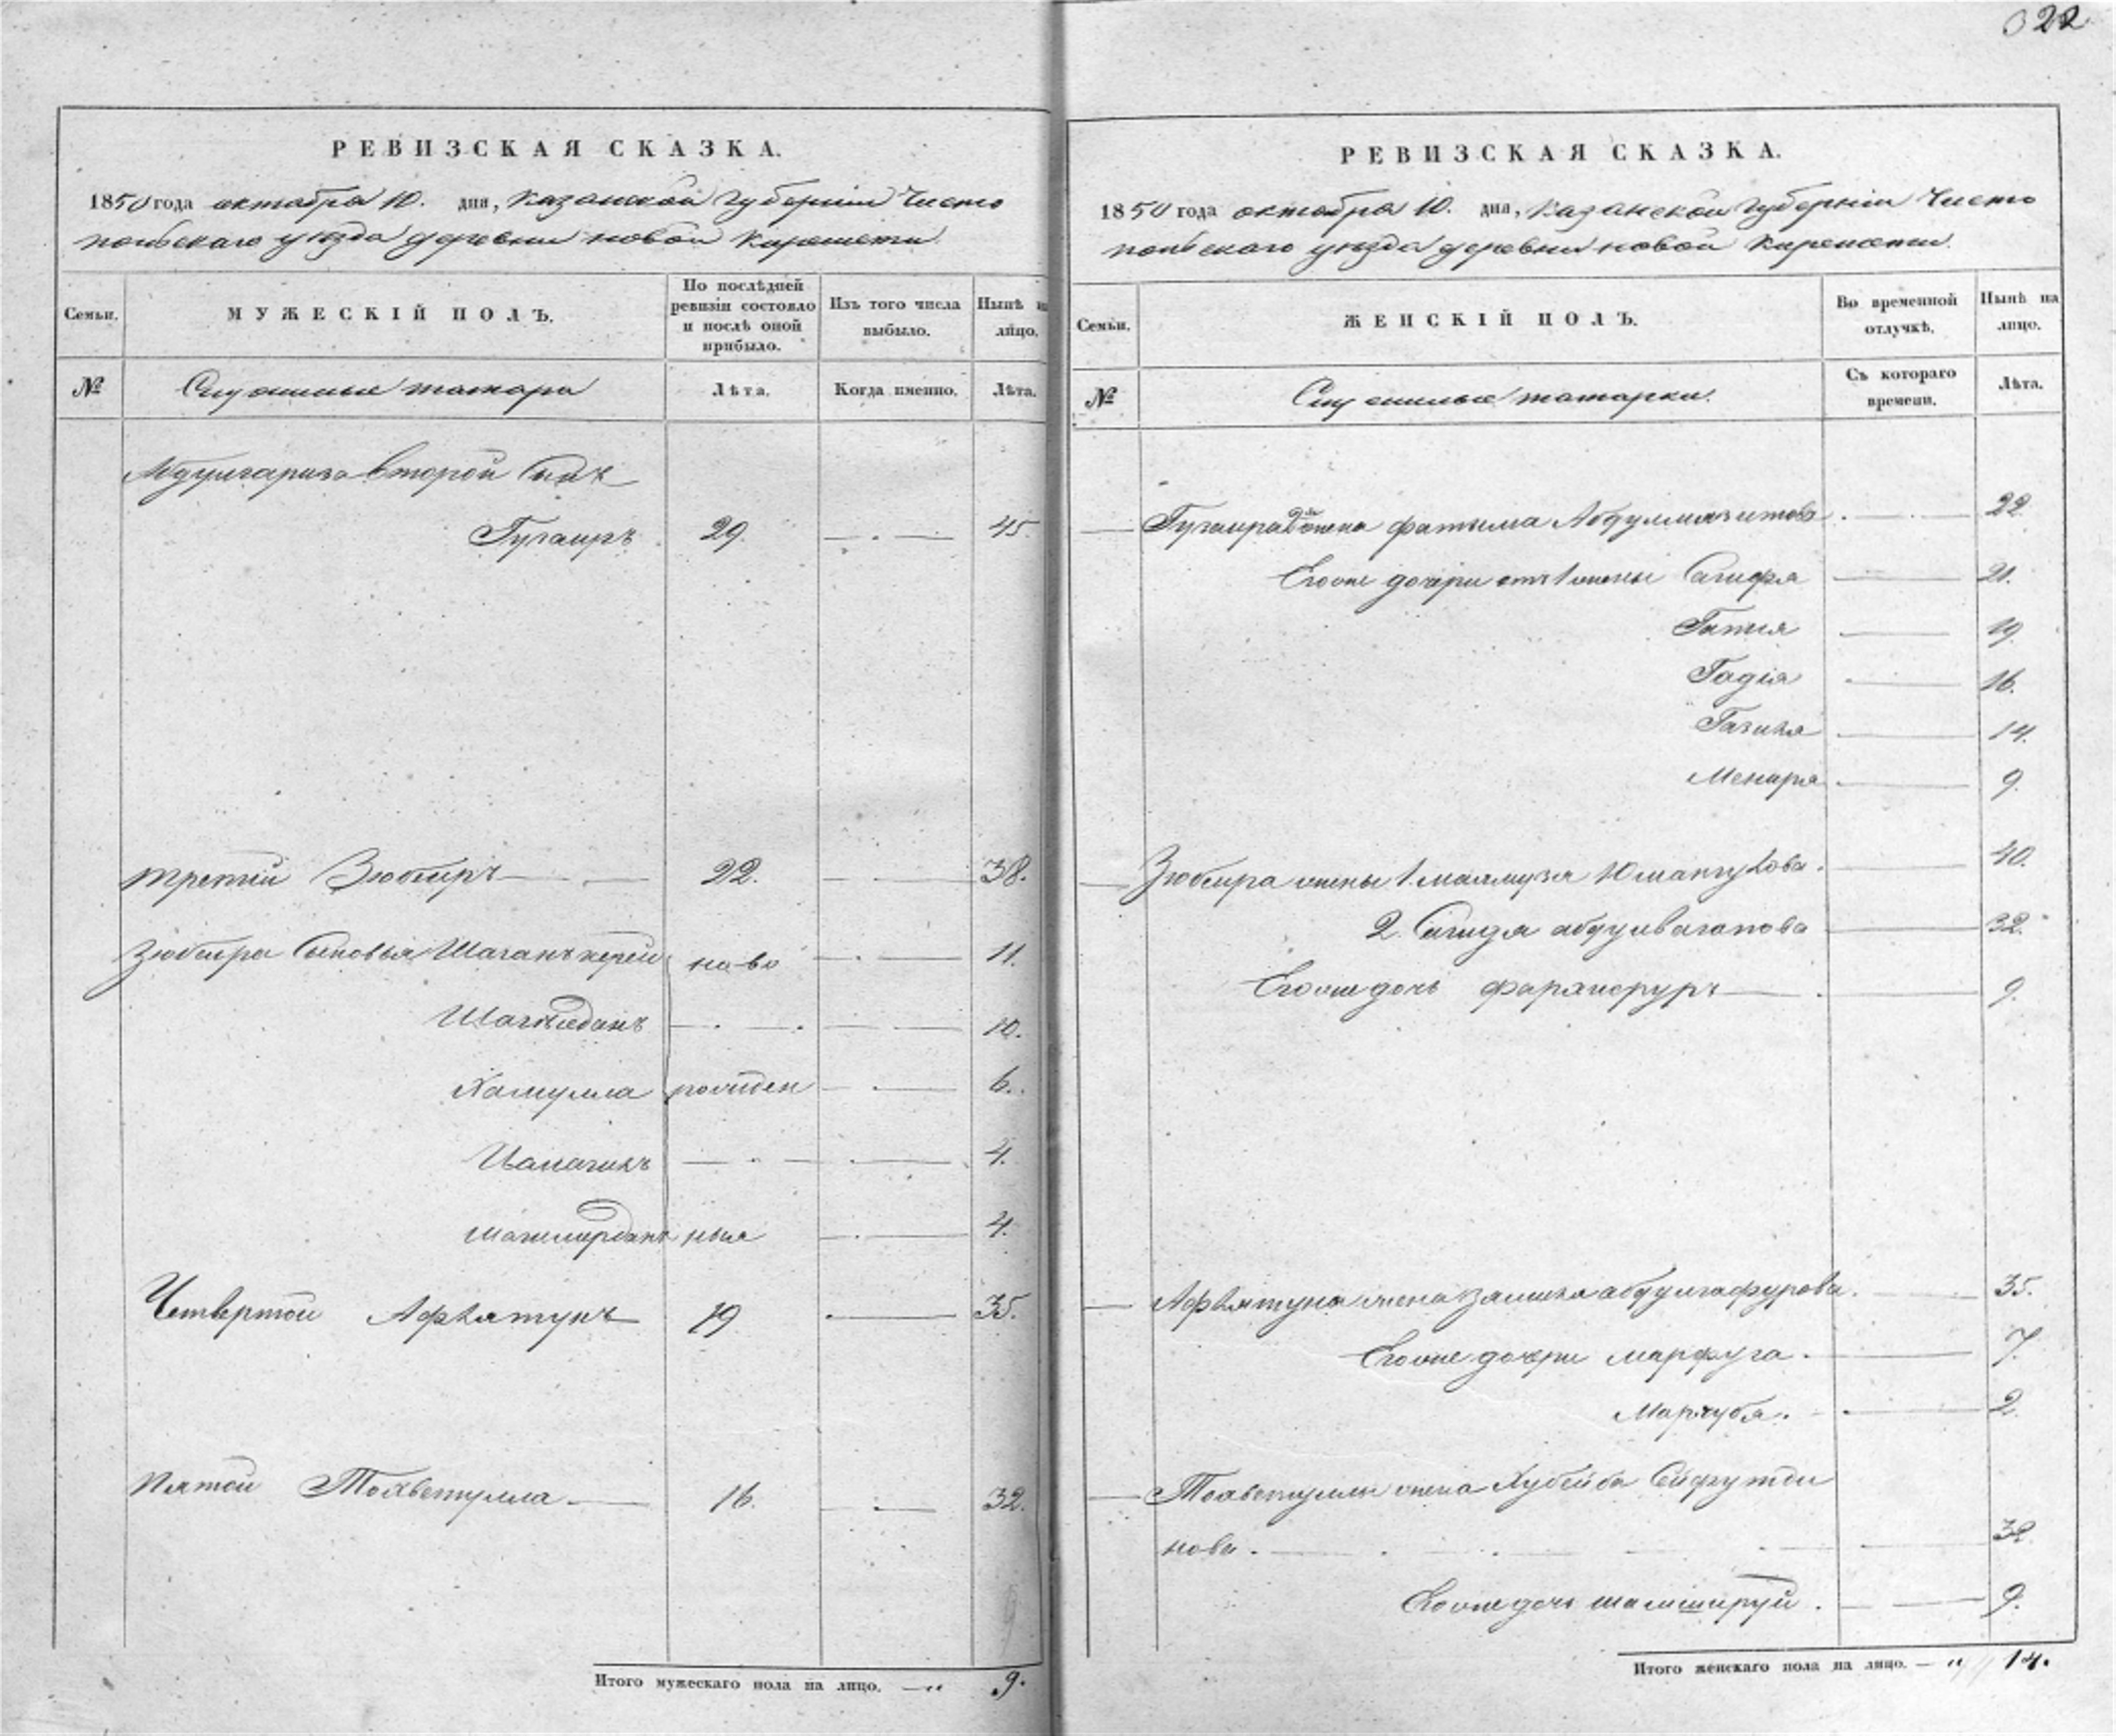 022
РЕВИЗСКАЯ СКАЗКА.
1850 года октября 10. дня, Казанской Губерніи Чисто
польскаго уѣзда деревни новой Киреметы
Семьи. МУЖЕСКІЙ ПОЛЪ. По послѣдней ревизіи состояло и послѣ оной прибыло. Изъ того числа выбыло. Нынѣ на лицо.
№ Служилые татара Лѣта. Когда именно. Лѣта.
второй сынъ
Тугаиръ 29. 45.
третій Зюбеиръ 22. 38.
Зюбеира сыновья Шаганъ герей ново 11.
10.
Хамулла рожден 6.
4.
ныя 4.
Четвертой Афлятунъ 19 35.
Пятой Тохветулла 16. 32.
Итого мужескаго пола на лицо. 9.
РЕВИЗСКАЯ СКАЗКА.
1850 года октября 10. дня, Казанской Губерніи Чисто
польскаго уѣзда деревни новой Киреметы.
Семьи. ЖЕНСКІЙ ПОЛЪ. Во временной отлучкѣ. Нынѣ на лицо.
№ Служилые татарки. Съ котораго времени. Лѣта.
Тугаира 2я жена фатыма 22.
Его же дочери отъ 1 жены 21.
19.
Гадія 16.
14.
9.
Зюбеира жены 1. 40.
2. Сагидя абдулвагапова 32.
Его же дочь 9.
Афлятуна жена абдулгафурова. 35.
Его же дочери марфуга. 7.
2.
Тохветуллы жена Хубейба Сейфутди
нова. 32.
Его же дочь 9.
Итого женскаго пола на лицо. 14.